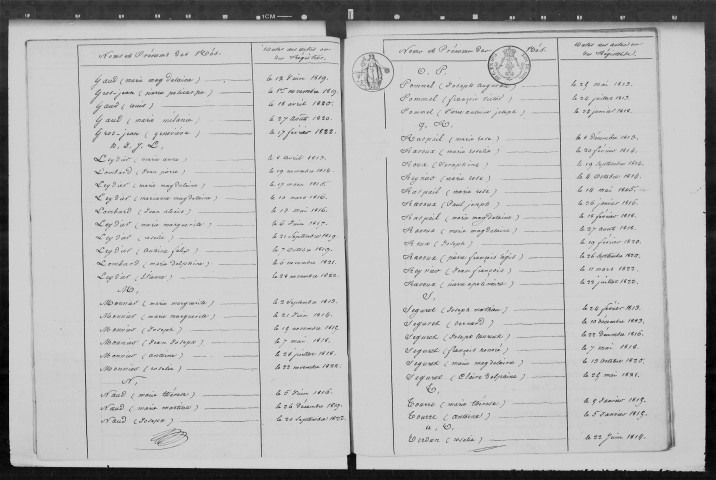 Noms et Prénoms des Nés.
Dates des actes ou des Régistres.
Gaud (marie magdelaine) le 12 Juin 1819.
Gros-jean (marie policarpe) le 1er novembre 1819
Gaud (louis) le 18 avril 1820.
Gaud (marie mélanie) le 27 août 1820.
Gros-jean (geneviève) le 17 février 1822.
h, I, J, L,
Leydier (marie anne) le avril 1813.
Lombard (jean pierre) le 19 novembre 1814
Leydier (marie magdelaine) le 17 mars 1815.
Leydier (marianne magdelaine) le 10 mars 1816.
Lombard (jean alexis) le 17 mai 1816.
Leydier (marie marguerite) le 6 Juin 1817.
Leydier (rosalie) le 21 Septembre 1819.
Leydier (antoine felix) le 7 octobre 1819.
Lombard (marie delphine) le 6 novembre 1821.
Leydier (Pierre) le 24 novembre 1822.
M,
Monnier (marie marguerite) le 2 Septembre 1813.
Monnier (marie marguerite) le 21 Juin 1814.
Monnier (Joseph) le 19 novembre 1815
Monnier (Jean Joseph) le 7 mai 1818.
Monnier (antoine) le 28 juillet 1818.
Monnier (rosalie) le 22 novembre 1822.
N,
Naud (marie thérèse) le 5 Juin 1816.
Naud (marie martine) le 26 décembre 1819.
Naud (Joseph) le 20 Septembre 1822.
Noms et Prénoms des Nés.
Dates des actes ou des Régistres.
O, P,
Pommel (Joseph auguste) le 25 mai 1813.
Pommel (françois xavier) le 26 juillet 1813.
Pommel (Pierre antoine joseph) le 28 janvier 1818.
q, R,
Raspail (marie rose) le 6 décembre 1813.
Raroux (marie rosalie) le 20 février 1814.
Roux (Seraphine) le 19 septembre 1814.
Reynier (marie rose) le 6 octobre 1814.
Raspail (marie rose) le 14 mai 1815.
Raroux (Paul joseph) le 26 janvier 1816.
Raspail (marie magdelaine) le 18 février 1818.
Raroux (marie magdelaine) le 27 août 1818.
Roux (Joseph) le 19 février 1820.
Raroux (pierre françois) le 26 septembre 1820.
Reynier (Jean françois) le 11 mars 1822.
Raroux (pierre apolinaire) le 22 juillet 1822.
S,
Seguret (Joseph mathieu) le 24 février 1813.
Seguret (bernard) le 10 décembre 1813.
Seguret (Joseph laurent) le 22 décembre 1816.
Seguret (françois honoré) le 7 mai 1818.
Seguret (marie magdelaine) le 13 octobre 1820.
Seguret (Claire Delphine) le 25 mai 1821.
T,
Tourre (marie thérèse) le 9 Janvier 1819.
Tourre (antoine) le 5 Janvier 1819.
u, V,
Verdan (rosalie) le 22 Juin 1814.